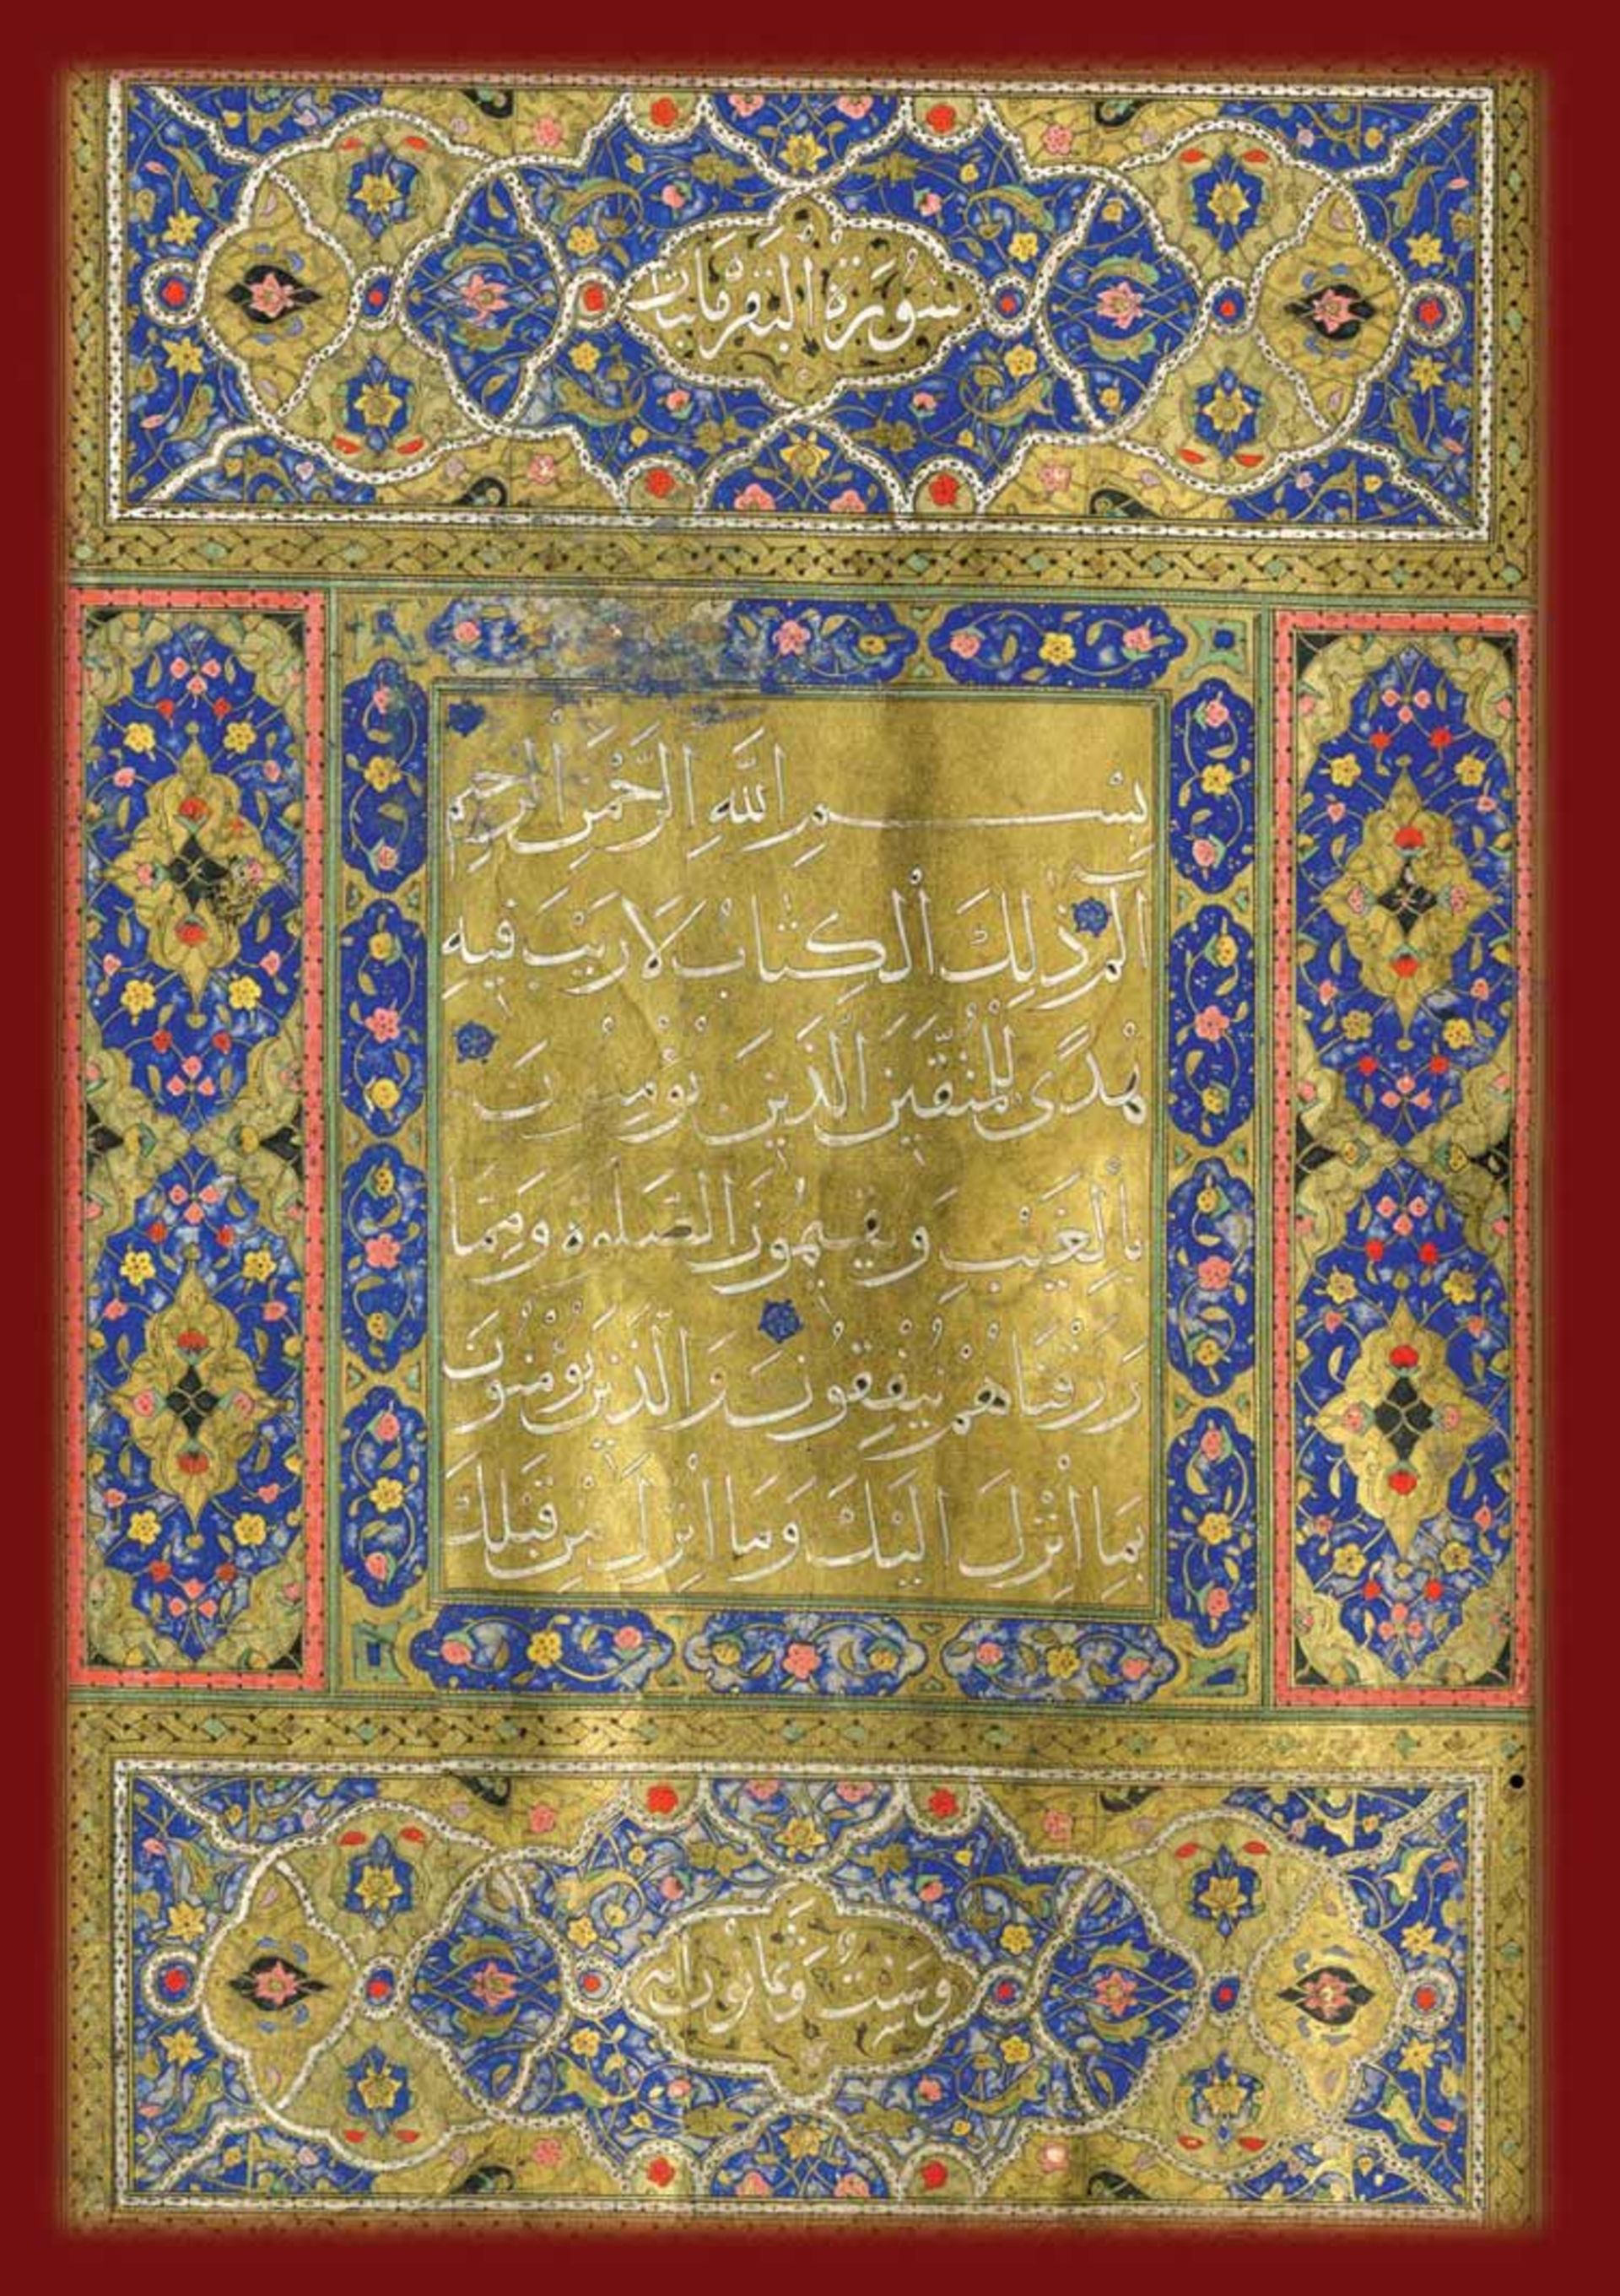 سُورَةُ البقرة مائتان
بِسْمِ اللَّهِ الرَّحْمَنِ الرَّحِيمِ
الٓمٓ ذَلِكَ ٱلْكِتَابُ لَا رَيْبَ فِيهِ
هُدًى لِلْمُتَّقِينَ الَّذِينَ يُؤْمِنُونَ
بِالْغَيْبِ وَيُقِيمُونَ الصَّلَوةَ وَمِمَّا
رَزَقْنَاهُمْ يُنْفِقُونَ وَالَّذِينَ يُؤْمِنُونَ
بِمَا أُنْزِلَ إِلَيْكَ وَمَا أُنْزِلَ مِنْ قَبْلِكَ
وَسِتٌّ وَثَمَانُونَ آية